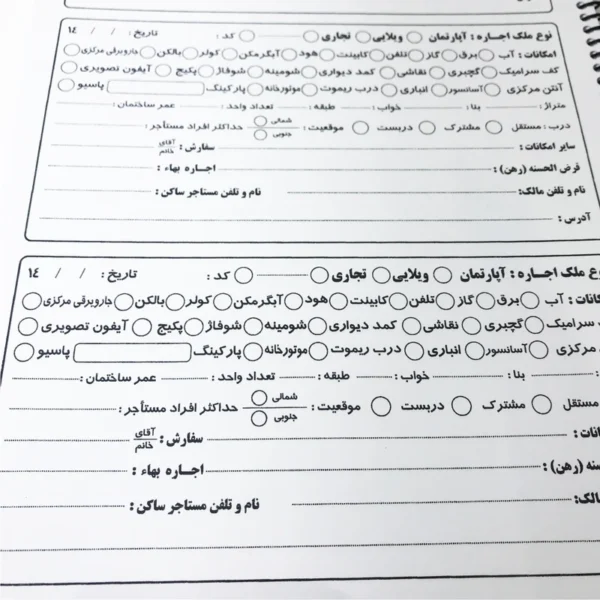 نوع ملک اجاره : آپارتمان ویلایی تجاری کد : تاریخ : / / ١٤
امکانات : آب برق گاز تلفن کابینت هود آبگرمکن کولر بالکن جاروبرقی مرکزی
کف سرامیک گچبری نقاشی کمد دیواری شومینه شوفاژ پکیج آیفون تصویری
آنتن مرکزی آسانسور انباری درب ریموت موتورخانه پارکینگ پاسیو
متراژ : بنا : خواب : طبقه : تعداد واحد : عمر ساختمان :
درب : مستقل مشترک دربست موقعیت : شمالی جنوبی حداکثر افراد مستأجر :
سایر امکانات : سفارش : آقای خانم
قرض الحسنه (رهن) : اجاره بهاء :
نام و تلفن مالک: نام و تلفن مستاجر ساکن :
آدرس :
وع ملک اجاره : آپارتمان ویلایی تجاری کد : تاریخ : / / ١٤
کانات : آب برق گاز تلفن کابینت هود آبگرمکن کولر بالکن جاروبرقی مرکزی
سرامیک گچبری نقاشی کمد دیواری شومینه شوفاژ پکیج آیفون تصویری
مرکزی آسانسور انباری درب ریموت موتورخانه پارکینگ پاسیو
: بنا : خواب : طبقه : تعداد واحد : عمر ساختمان :
مستقل مشترک دربست موقعیت : شمالی جنوبی حداکثر افراد مستأجر :
کانات : سفارش : آقای خانم
سنه (رهن) : اجاره بهاء :
مالک: نام و تلفن مستاجر ساکن :